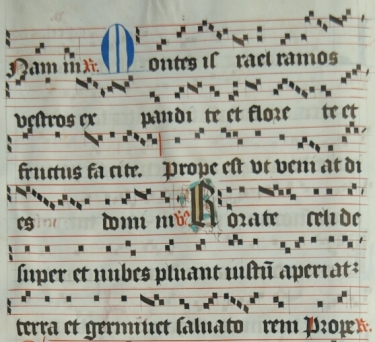 Nam in R. Montes is rael ramos
vestros ex pandi te et flore te et
fructus fa cite. prope est vt veni at di
es domi ni V. Rorate celi de
super et nubes pluant iustū aperiat:
terra et germinet saluato rem Prope R.